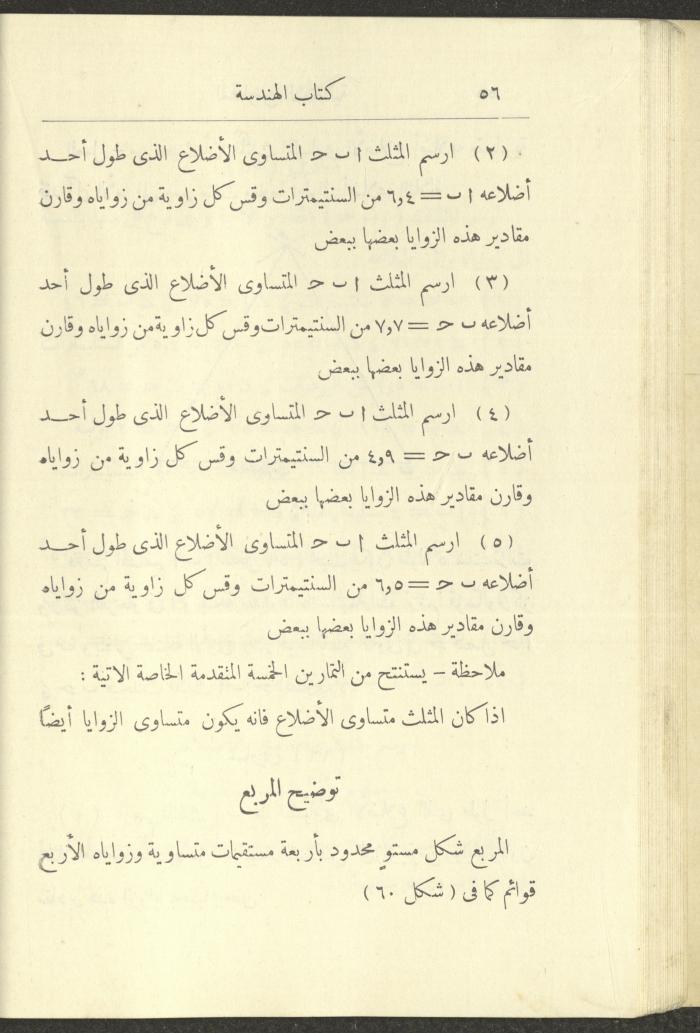 ٥٦ كتاب الهندسة
(٢) ارسم المثلث ا ب ح المتساوى الأضلاع الذى طول أحد
أضلاعه ا ب = ٦,٤ من السنتيمترات وقس كل زاوية من زواياه وقارن
مقادير هذه الزوايا بعضها ببعض
(٣) ارسم المثلث ا ب ح المتساوى الأضلاع الذى طول أحد
أضلاعه ب ح = ٧,٧ من السنتيمترات وقس كل زاوية من زواياه وقارن
مقادير هذه الزوايا بعضها ببعض
(٤) ارسم المثلث ا ب ح المتساوى الأضلاع الذى طول أحد
أضلاعه ب ح = ٤,٩ من السنتيمترات وقس كل زاوية من زواياه
وقارن مقادير هذه الزوايا بعضها ببعض
(٥) ارسم المثلث ا ب ح المتساوى الأضلاع الذى طول أحد
أضلاعه ب ح = ٦,٥ من السنتيمترات وقس كل زاوية من زواياه
وقارن مقادير هذه الزوايا بعضها ببعض
ملاحظة – يستنتج من التمارين الخمسة المتقدمة الخاصة الاتية :
اذا كان المثلث متساوى الأضلاع فانه يكون متساوى الزوايا أيضًا
توضيح المربع
المربع شكل مستوٍ محدود بأربعة مستقيمات متساوية وزواياه الأربع
قوائم كما فى ( شكل ٦٠ )